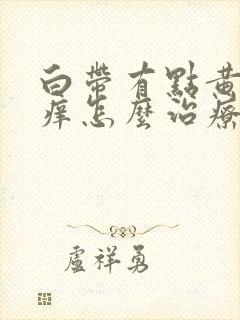 白帶有點黃
痒怎麼治療
盧祥勇